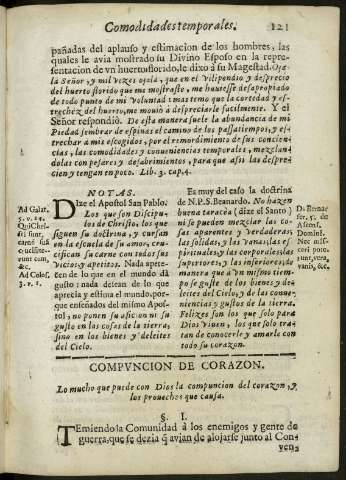 Comodidades temporales. 121
pañadas del aplauso y estimacion de los hombres, las
quales le avia mostrado su Divino Esposo en la repre-
sentacion de vn huerto florido, le dixo à su Magestad. Oja-
la Señor, y mil vezes ojala, que en el vilipendio y desprecio
del huerto florido que me mostraste, me huviesse desapropiado
de todo punto de mi voluntad: mas temo que la cortedad y est-
rechez del huerto, me moviò à despreciarle facilmente. Y el
Señor respondiò. De esta manera suele la abundancia de mi
Piedad sembrar de espinas el camino de los passatiempos, y es-
trechar a mis escogidos, por el remordimiento de sus concien-
cias, las comodidades y conveniencias temporales, mezclan-
dolas con pesares y desabrimientos, para que assi las despre-
cien y tengan en poco. Lib. 3. cap. 4.
NOTAS.
Dize el Apostol San Pablo.
Los que son Discipu-
los de Christo, los que
siguen su doctrina, y cursan
en la escuela de su amor, cru-
cifican su carne con todos sus
vicios y apetitos. Nada apete-
cen de lo que en el mundo dà
gusto: nada desean de lo que
aprecia y estima el mundo, por-
que enseñados del mismo Apos-
tol, no ponen su aficion ni su
gusto en las cosas de la tierra,
sino en los bienes y deleites
del Cielo.
Ad Galat.
5. v. 24.
Qui Chris-
ti sunt,
carnē suā
crucifixe-
runt cum,
&c.
Ad Colos.
3. v. 1.
Es muy del caso la doctrina
de N. P. S. Beanardo. No hazen
buena baracèa (dize el Santo)
ni se pueden mezclar las co-
sas aparentes y verdaderas,
las solidas, y las vanas, las es-
pirituales, y las corporales, las
superiores, y las inferiores, de
manera que à vn mismo tiem-
po se guste de los bienes y de-
leites del Cielo, y de las conve-
niencias y gustos de la tierra.
Felizes son los que solo para
Dios viven, los que solo tra-
tan de conocerle y amarle con
todo su corazon.
D. Bernar-
ser. 5. de
Ascens.
Domini.
Nec mis-
ceri pote-
runt, vera,
vanis, &c.
COMPVNCION DE CORAZON.
Lo mucho que puede con Dios la compuncion del corazon, y
los provechos que causa.
§. I.
Temiendo la Comunidad à los enemigos y gente de
guerra, que se dezia q̃ avian de alojarse junto al Con-
ven-